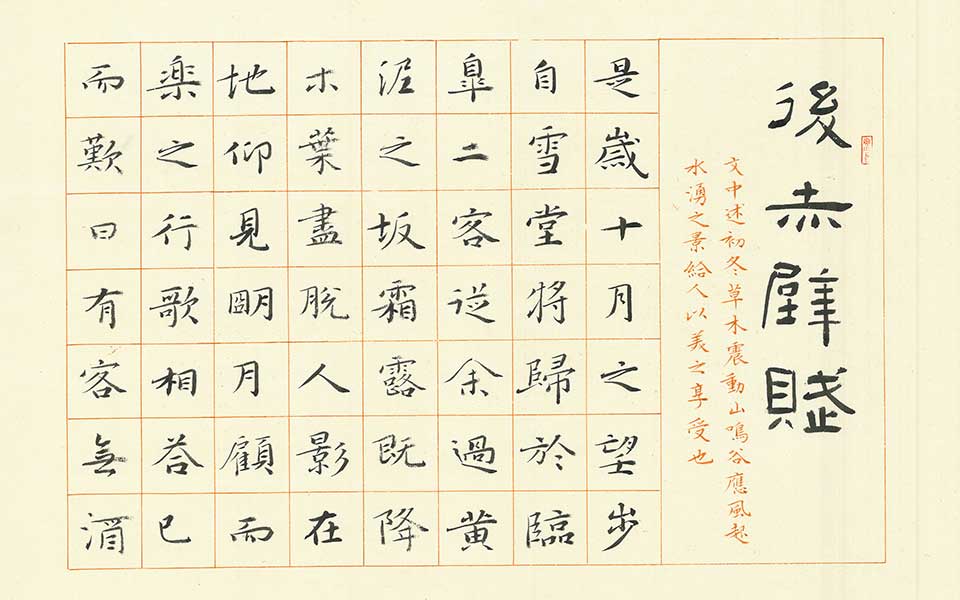 後赤壁賦
文中述初冬草木震動山鳴谷應風起
水湧之景給人以美之享受也
是歲十月之望步
自雪堂將歸於臨
皐二客從余過黄
泥之坂霜露既降
木葉盡脫人影在
地仰見朙月顧而
楽之行歌相答已
而歎曰有客無酒